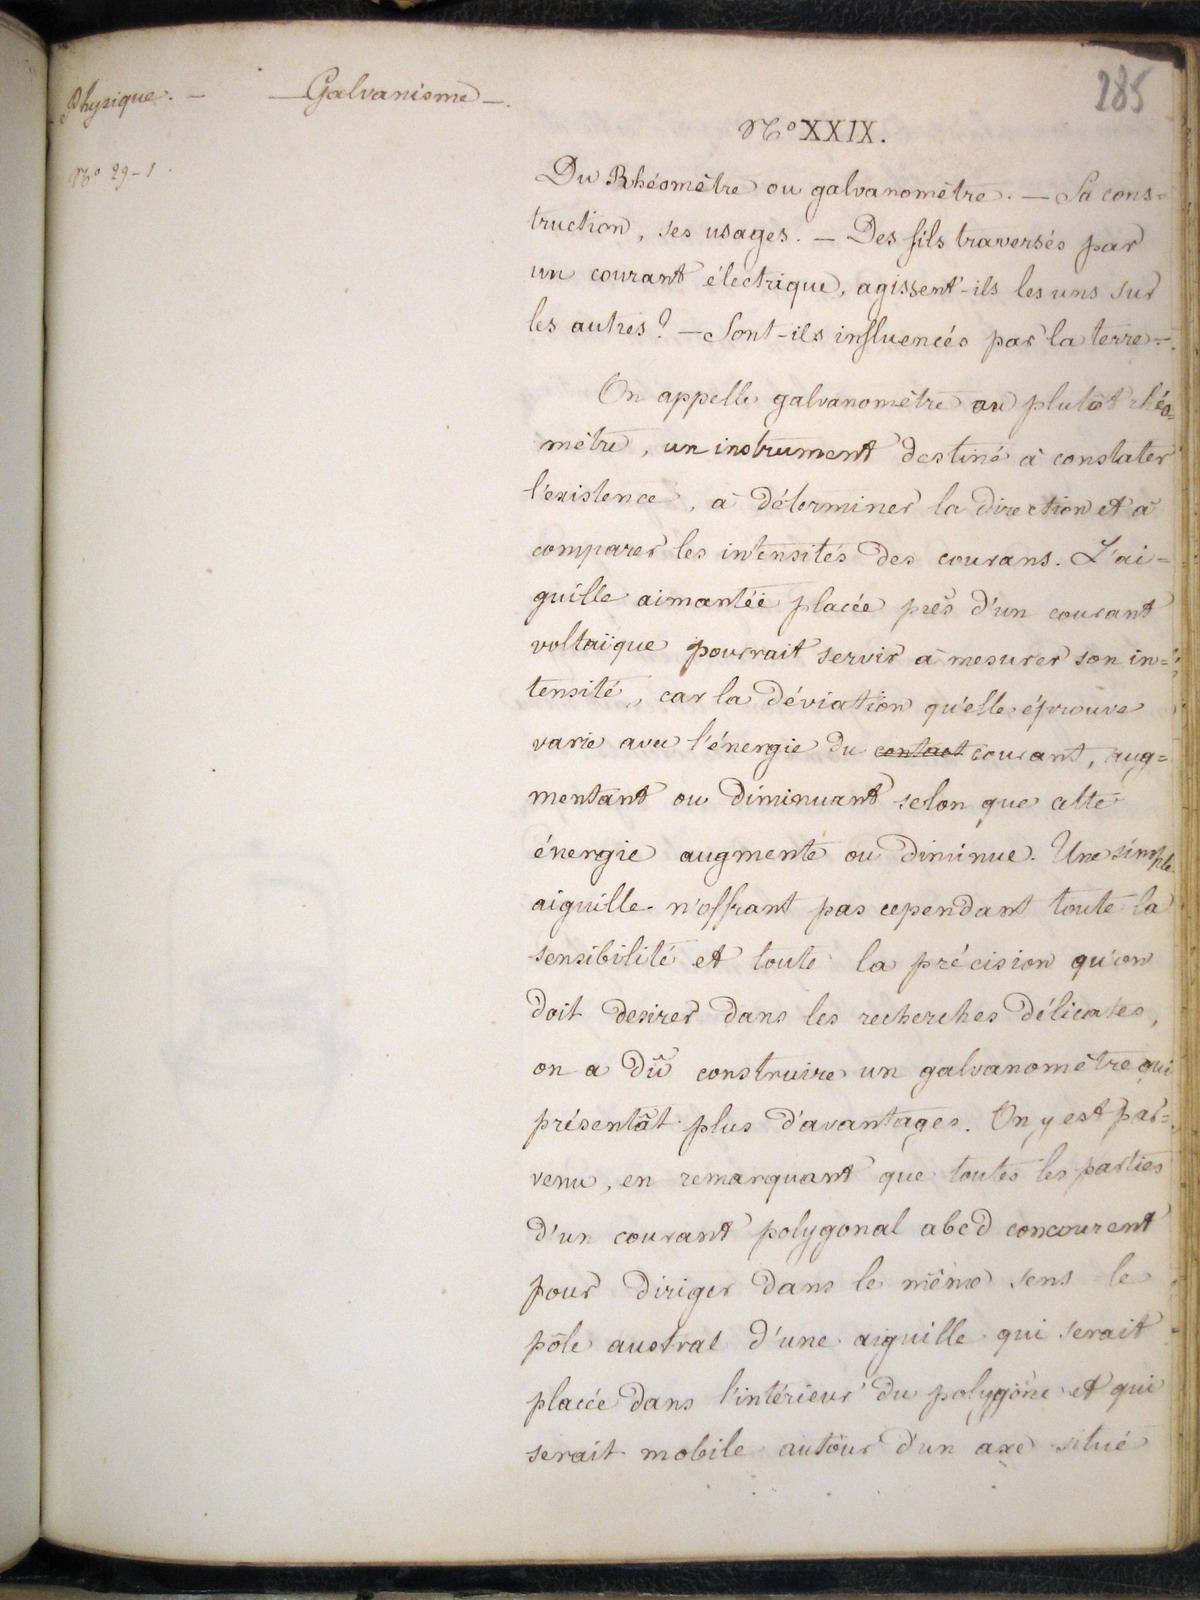 Physique. — — Galvanisme —.
285
N° 29-1.
N° XXIX.
Du Rhéomètre ou galvanomètre. — Sa cons=
truction, ses usages. — Des fils traversés par
un courant électrique, agissent-ils les uns sur
les autres ? — Sont-ils influencés par la terre —.
On appelle galvanomètre ou plutôt rhéo=
mètre, un instrument destiné à constater
l'existence, à déterminer la direction et à
comparer les intensités des courans. L'ai=
guille aimantée placée près d'un courant
voltaïque pourrait servir à mesurer son in=
tensité, car la déviation qu'elle éprouve
varie avec l'énergie du contact courant, aug=
mentant ou diminuant selon que cette
énergie augmente ou diminue. Une simple
aiguille n'offrant pas cependant toute la
sensibilité et toute la précision qu'on
doit desirer dans les recherches délicates,
on a dû construire un galvanomètre qui
présentât plus d'avantages. On y est par=
venu, en remarquant que toutes les parties
d'un courant polygonal abcd concourent
pour diriger dans le même sens le
pôle austral d'une aiguille qui serait
placée dans l'intérieur du polygône et qui
serait mobile autour d'un axe situé